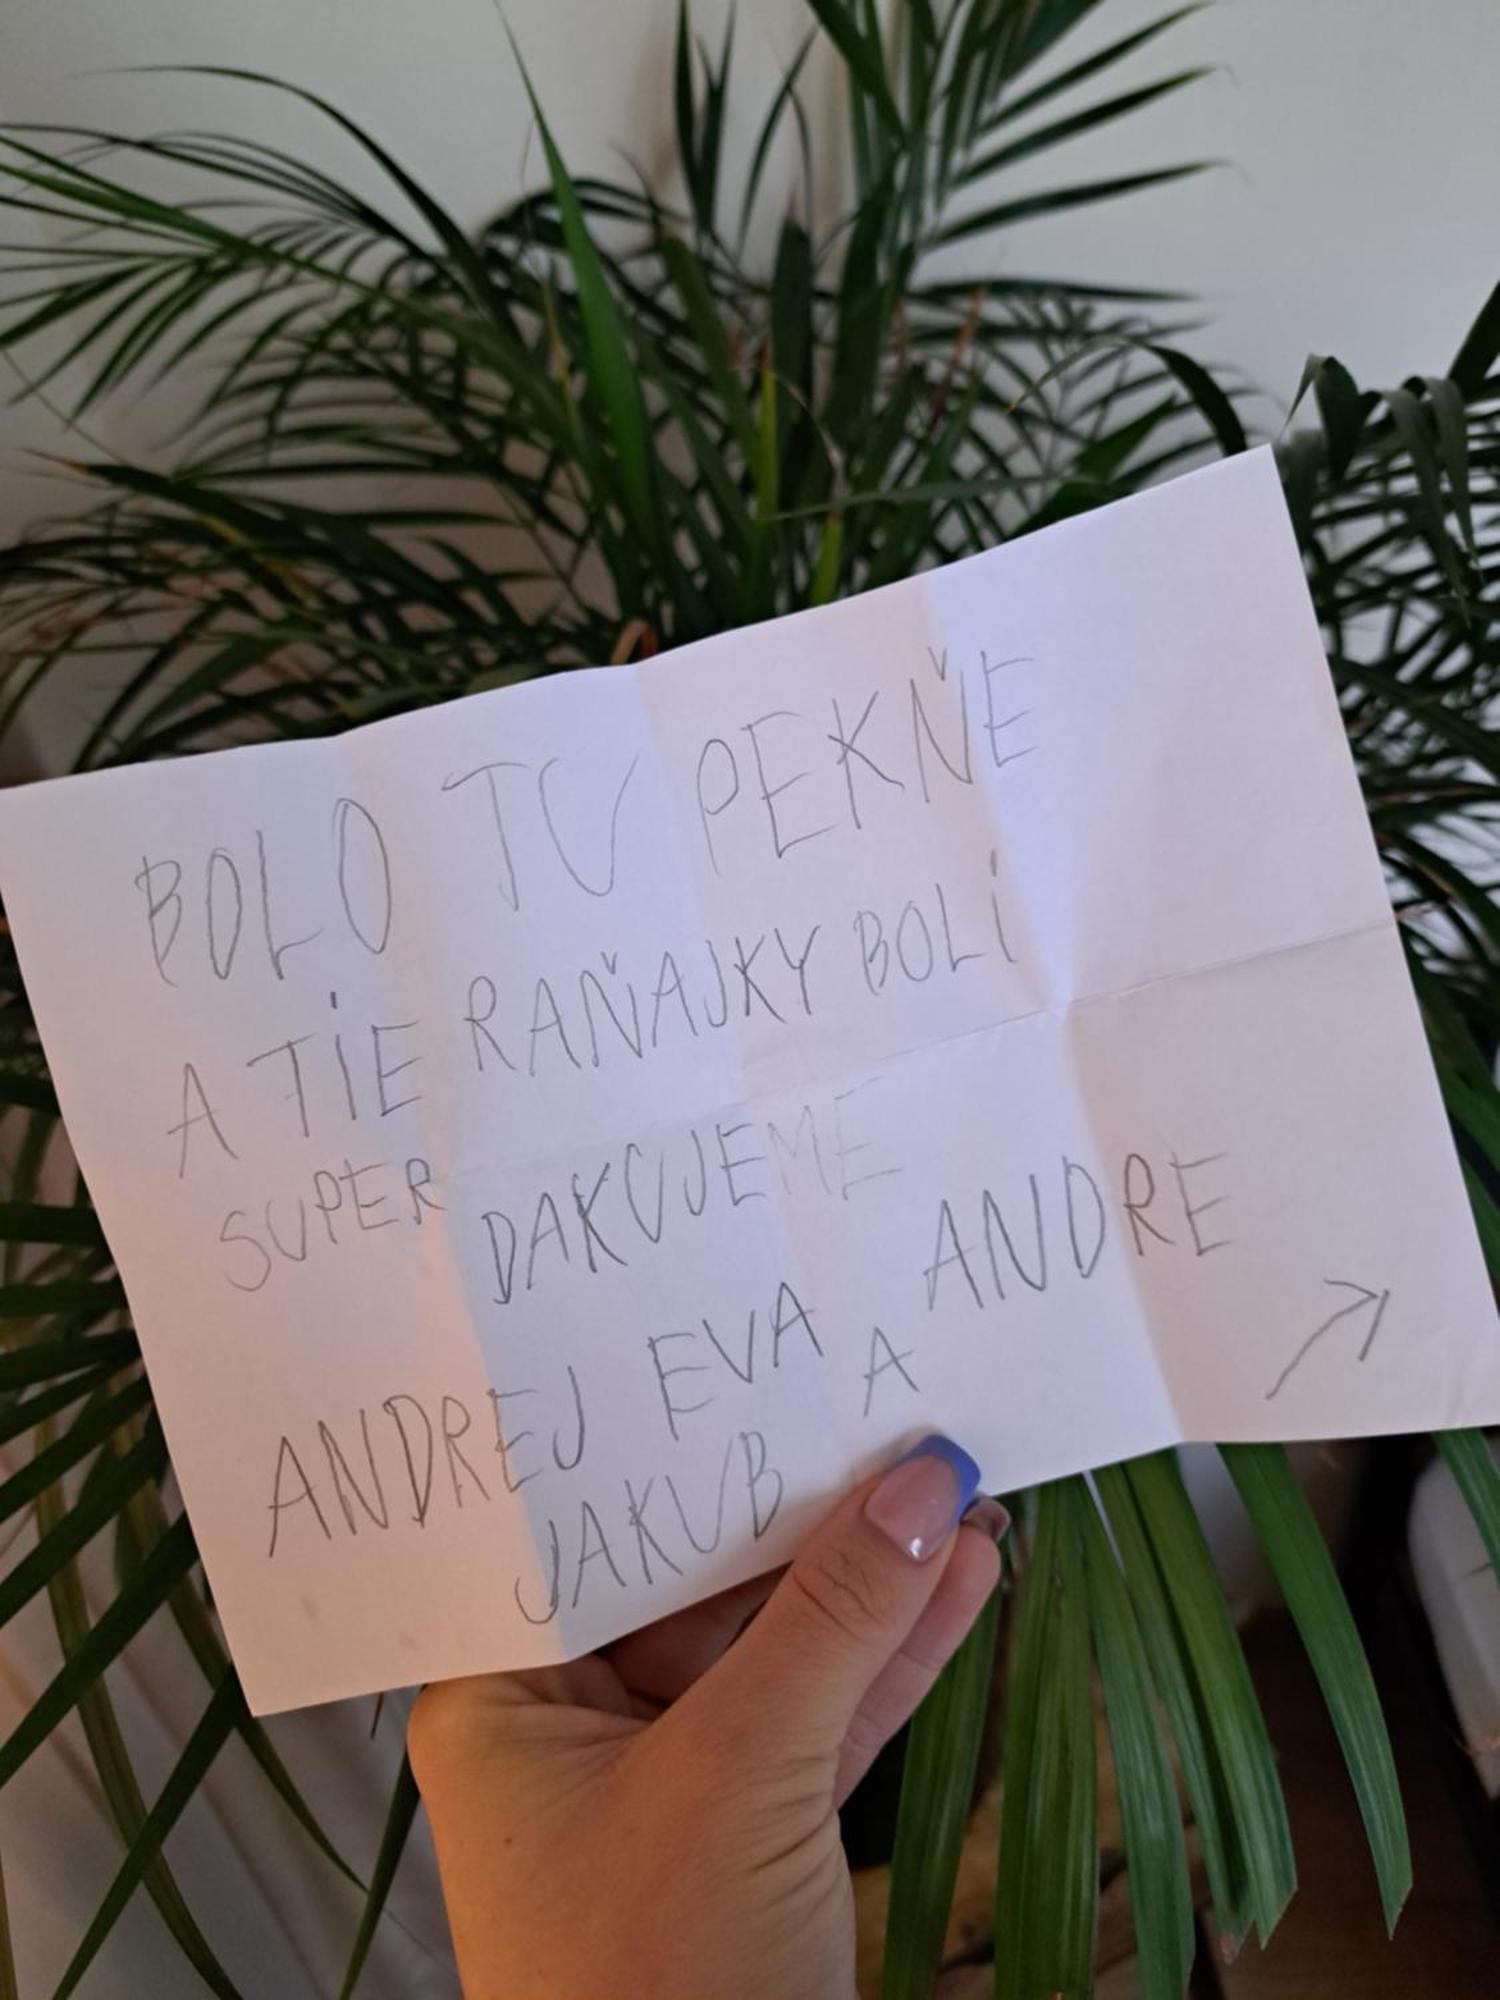 BOLO TU PEKŇE
A TIE RAŇAJKY BOLI
SUPER DAKUJEME
ANDREJ EVA A ANDRE
JAKUB